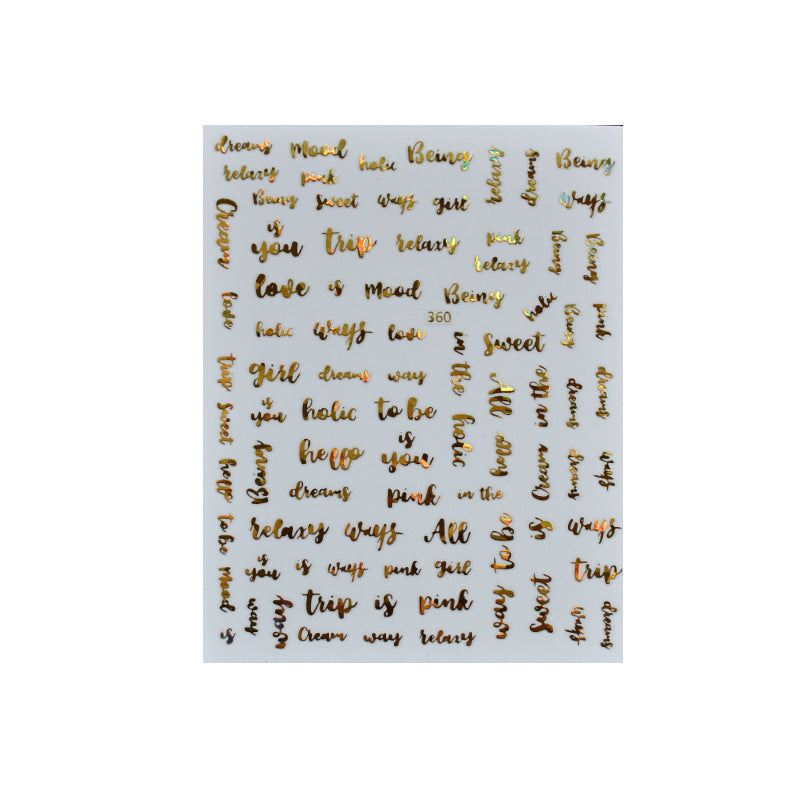 dreams Mood holic Being relaxy dreams Being
relaxy pink
Being Sweet ways girl ways
Cream is you trip relaxy pink Being Being
relaxy
love is Mood Being holic Being pink
360
love holic ways love in the holic Sweet
trip girl dreams way All Cream in the dreams dreams
sweet is you holic to be
heppo Being heppo is you heppo dreams ways
dreams pink in the
to be relaxy ways All way to be is ways
mood is you is ways pink girl sweet trip
way way trip is pink ways dreams
is Cream way relaxy